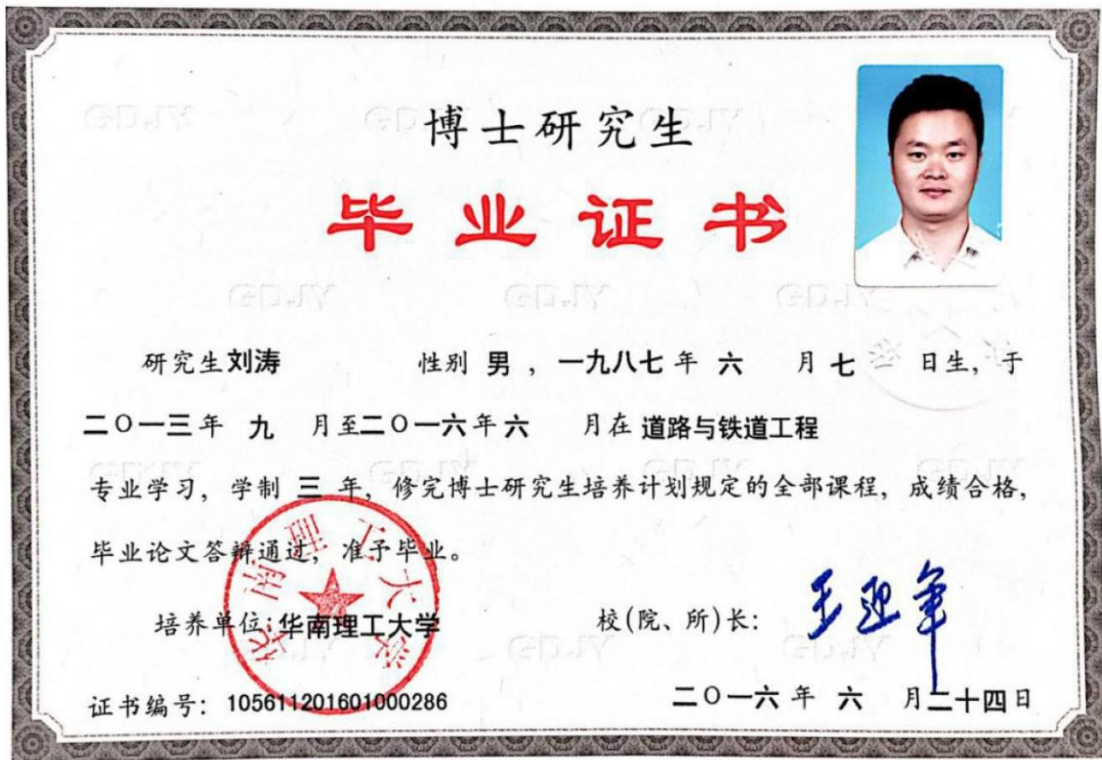 博士研究生
毕业证书
研究生刘涛 性别 男 , 一九八七 年 六 月 七 日生, 于
二〇一三 年 九 月至二〇一六年 六 月在 道路与铁道工程
专业学习, 学制 三 年, 修完博士研究生培养计划规定的全部课程, 成绩合格,
毕业论文答辩通过, 准予毕业。
培养单位: 华南理工大学
校(院、所)长: 王迎军
证书编号: 105611201601000286
二〇一六 年 六 月二十四日
华南理工大学
GDJY